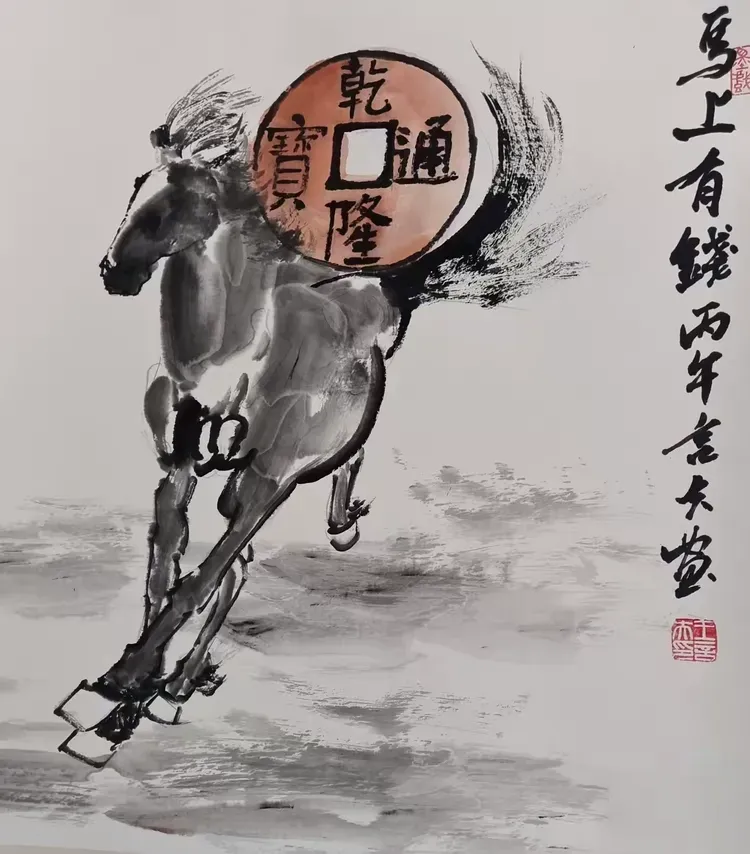 馬上有錢丙午言大畫
乾隆通寶